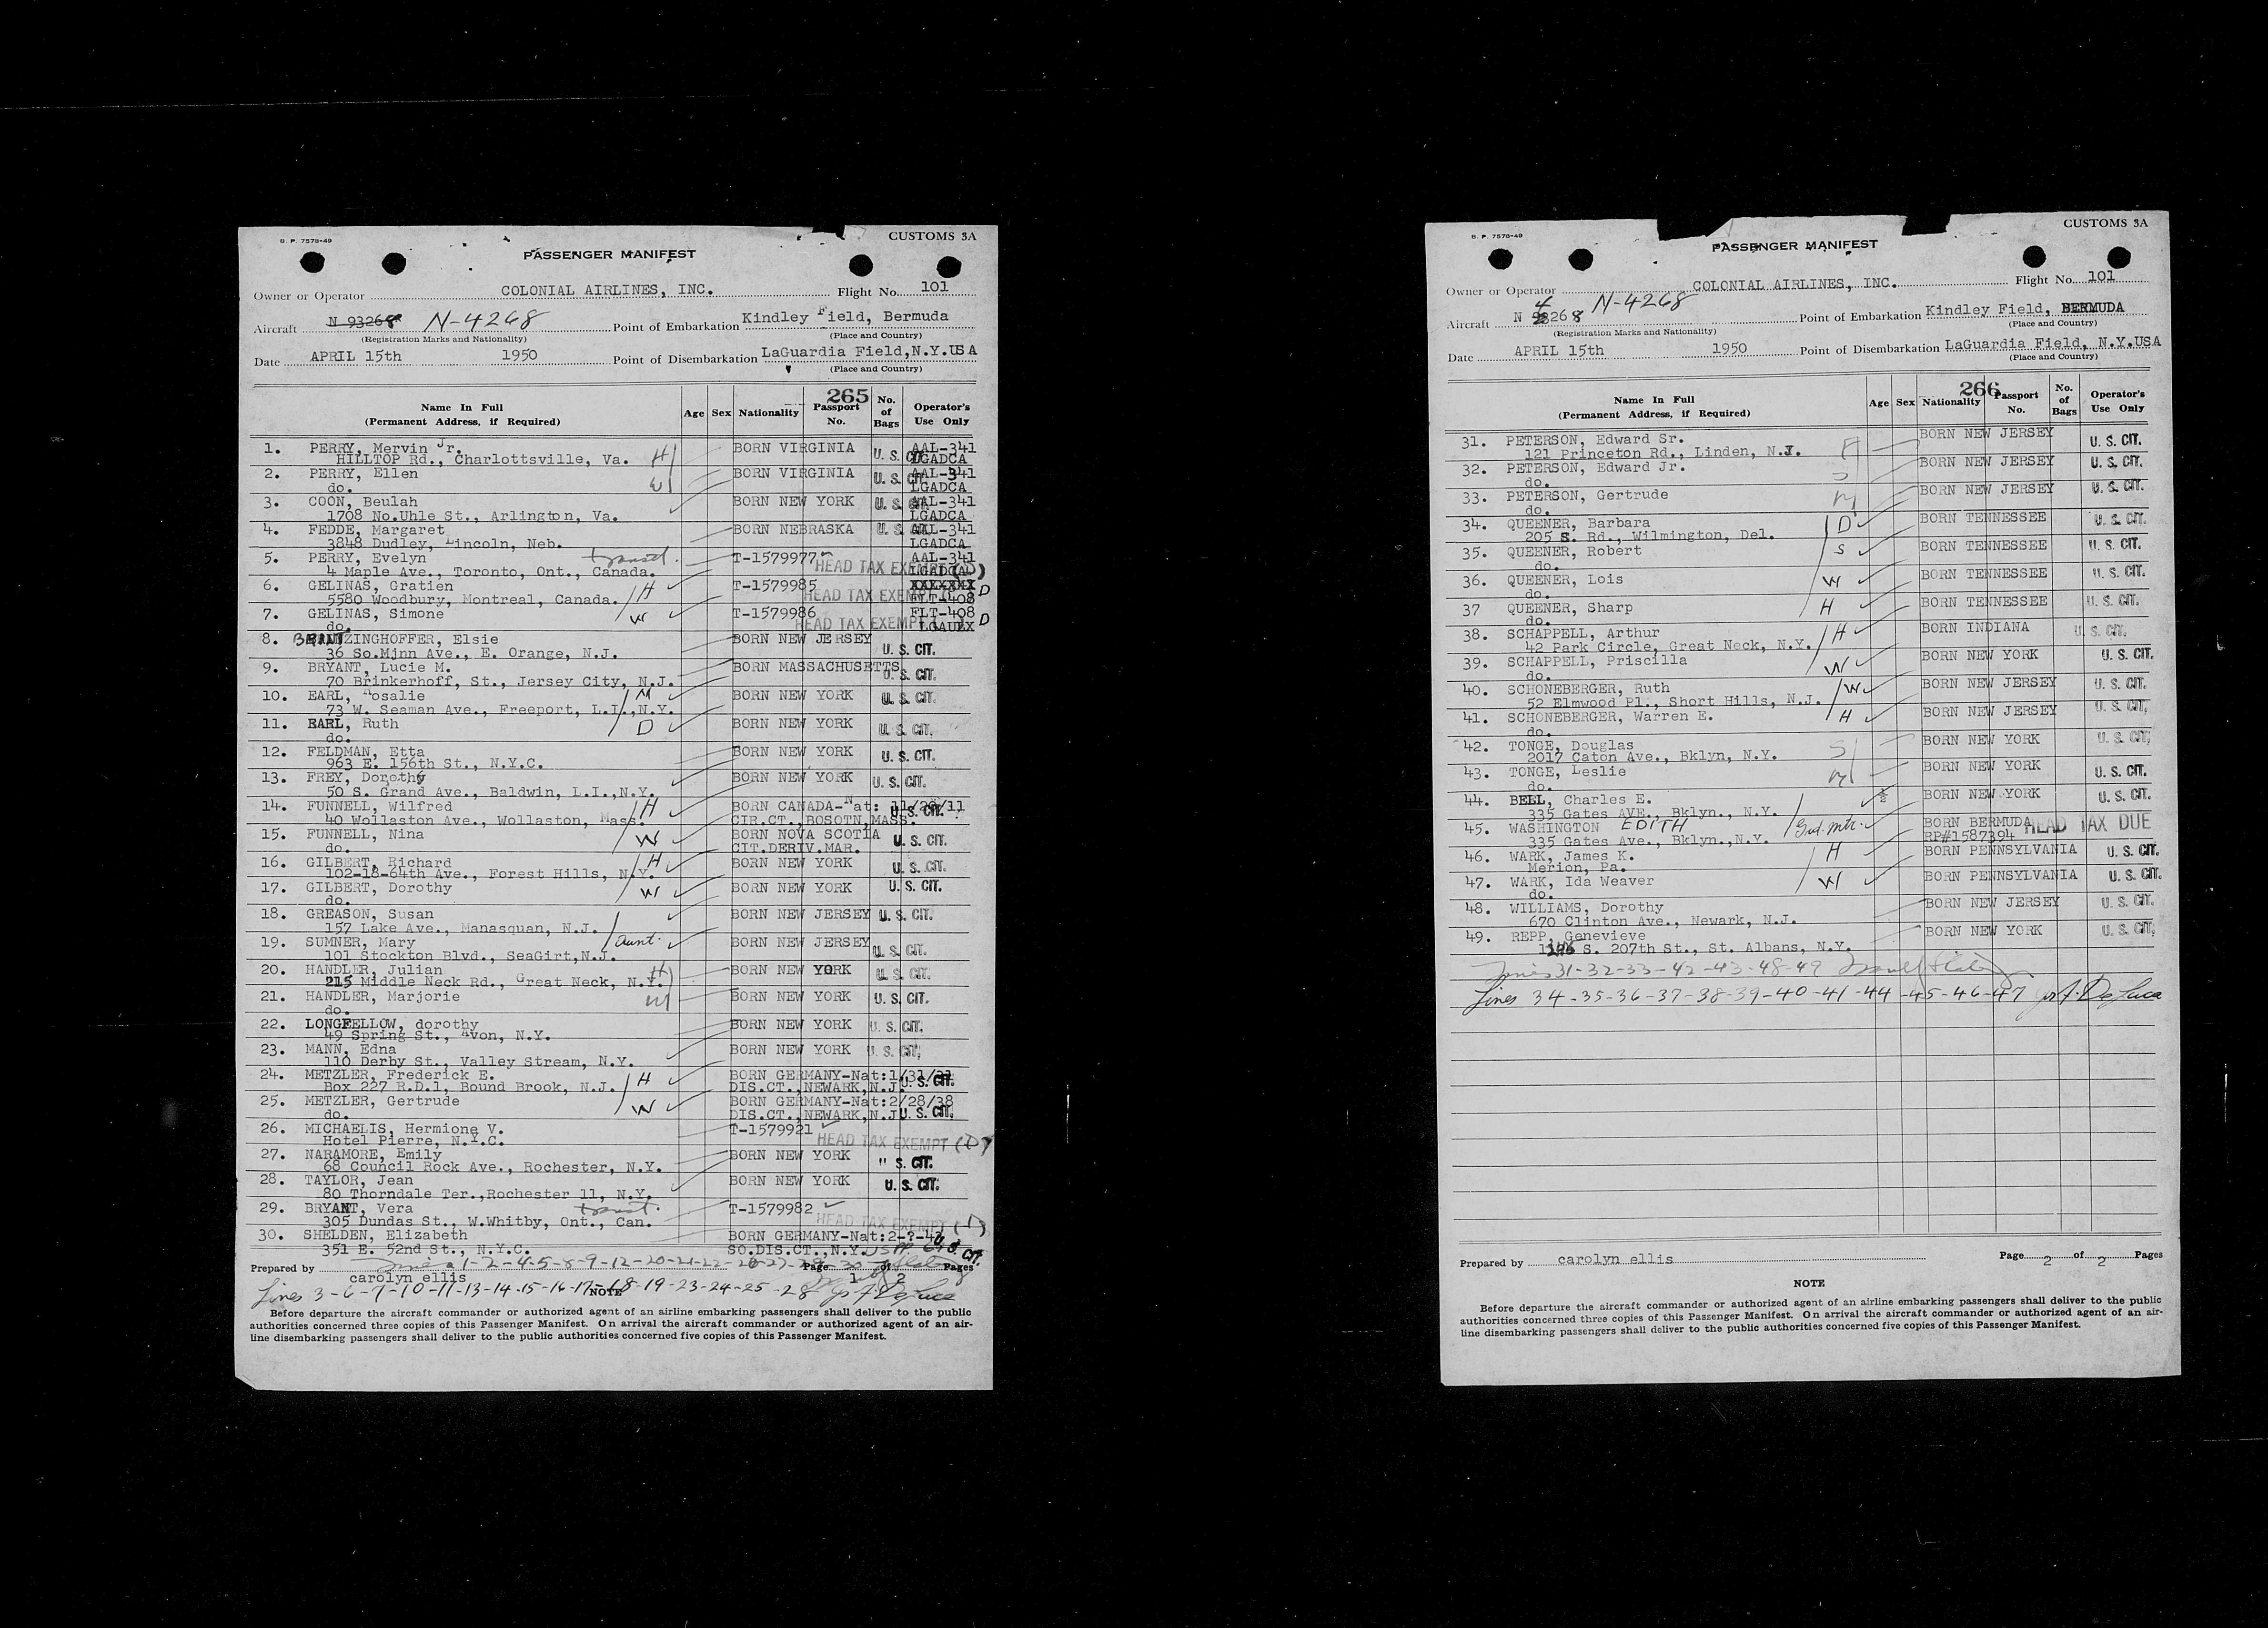 B. P. 7578-49
CUSTOMS 3A
PASSENGER MANIFEST
Owner or Operator COLONIAL AIRLINES, INC. Flight No. 101
Aircraft N 93268 N-4268 Point of Embarkation Kindley Field, Bermuda
(Registration Marks and Nationality) (Place and Country)
Date APRIL 15th 1950 Point of Disembarkation LaGuardia Field,N.Y.USA
(Place and Country)
265
Name In Full (Permanent Address, if Required) Age Sex Nationality Passport No. No. of Bags Operator's Use Only
1. PERRY, Mervin Jr. H BORN VIRGINIA U. S. CIT. AAL-341
HILLTOP Rd., Charlottsville, Va. LGADCA
2. PERRY, Ellen W BORN VIRGINIA U. S. CIT. AAL-341
do. LGADCA
3. COON, Beulah BORN NEW YORK U. S. CIT. AAL-341
1708 No.Uhle St., Arlington, Va. LGADCA
4. FEDDE, Margaret BORN NEBRASKA U. S. CIT. AAL-341
3848 Dudley, Lincoln, Neb. LGADCA
5. PERRY, Evelyn transit. T-1579977 AAL-341
4 Maple Ave., Toronto, Ont., Canada. HEAD TAX EXEMPT LGADCA
6. GELINAS, Gratien H T-1579985
5580 Woodbury, Montreal, Canada. HEAD TAX EXEMPT FLT-408 D
7. GELINAS, Simone W T-1579986 FLT-408
do. HEAD TAX EXEMPT LGAUEX D
8. BRANTZINGHOFFER, Elsie BORN NEW JERSEY
36 So.Minn Ave., E. Orange, N.J. U. S. CIT.
9. BRYANT, Lucie M. BORN MASSACHUSETTS
70 Brinkerhoff, St., Jersey City, N.J. U. S. CIT.
10. EARL, Rosalie M BORN NEW YORK U. S. CIT.
73 W. Seaman Ave., Freeport, L.I.,N.Y.
11. EARL, Ruth D BORN NEW YORK U. S. CIT.
do.
12. FELDMAN, Etta BORN NEW YORK U. S. CIT.
963 E. 156th St., N.Y.C.
13. FREY, Dorothy BORN NEW YORK U. S. CIT.
50 S. Grand Ave., Baldwin, L.I.,N.Y.
14. FUNNELL, Wilfred H BORN CANADA-Nat: 11/20/11
40 Wollaston Ave., Wollaston, Mass. CIR.CT.,BOSOTN,MASS. U. S. CIT.
15. FUNNELL, Nina W BORN NOVA SCOTIA U. S. CIT.
do. CIT.DERIV.MAR.
16. GILBERT, Richard H BORN NEW YORK U. S. CIT.
102-18-64th Ave., Forest Hills, N.Y.
17. GILBERT, Dorothy W BORN NEW YORK U. S. CIT.
do.
18. GREASON, Susan BORN NEW JERSEY U. S. CIT.
157 Lake Ave., Manasquan, N.J.
19. SUMNER, Mary Aunt. BORN NEW JERSEY
101 Stockton Blvd., SeaGirt,N.J. U. S. CIT.
20. HANDLER, Julian H BORN NEW YORK U. S. CIT.
215 Middle Neck Rd., Great Neck, N.Y.
21. HANDLER, Marjorie W BORN NEW YORK U. S. CIT.
do.
22. LONGFELLOW, dorothy BORN NEW YORK U. S. CIT.
49 Spring St., Avon, N.Y.
23. MANN, Edna BORN NEW YORK U. S. CIT.
110 Derby St., Valley Stream, N.Y.
24. METZLER, Frederick E. H BORN GERMANY-Nat:1/31/
Box 227 R.D.1, Bound Brook, N.J. DIS.CT.,NEWARK,N.J. U. S. CIT.
25. METZLER, Gertrude W BORN GERMANY-Nat:2/28/38
do. DIS.CT.,NEWARK,N.J. U. S. CIT.
26. MICHAELIS, Hermione V. T-1579921
Hotel Pierre, N.Y.C. HEAD TAX EXEMPT (D)
27. NARAMORE, Emily BORN NEW YORK
68 Council Rock Ave., Rochester, N.Y. U. S. CIT.
28. TAYLOR, Jean BORN NEW YORK U. S. CIT.
80 Thorndale Ter.,Rochester 11, N.Y.
29. BRYANT, Vera transit. T-1579982
305 Dundas St., W.Whitby, Ont., Can. HEAD TAX EXEMPT
30. SHELDEN, Elizabeth BORN GERMANY-Nat:2-?-4
351 E. 52nd St., N.Y.C. SO.DIS.CT.,N.Y. CIT.
Prepared by carolyn ellis Page 1 of 2 Pages
Lines 1-2-4-5-8-9-12-20-21-22-26-27-29-30
Lines 3-6-7-10-11-13-14-15-16-17-18-19-23-24-25-28 F. DeLuca
NOTE
Before departure the aircraft commander or authorized agent of an airline embarking passengers shall deliver to the public
authorities concerned three copies of this Passenger Manifest. On arrival the aircraft commander or authorized agent of an air-
line disembarking passengers shall deliver to the public authorities concerned five copies of this Passenger Manifest.
B. P. 7578-49
CUSTOMS 3A
PASSENGER MANIFEST
Owner or Operator COLONIAL AIRLINES, INC. Flight No. 101
Aircraft N 4268 N-4268 Point of Embarkation Kindley Field, BERMUDA
(Registration Marks and Nationality) (Place and Country)
Date APRIL 15th 1950 Point of Disembarkation LaGuardia Field, N.Y.USA
(Place and Country)
266
Name In Full (Permanent Address, if Required) Age Sex Nationality Passport No. No. of Bags Operator's Use Only
31. PETERSON, Edward Sr. F BORN NEW JERSEY U. S. CIT.
121 Princeton Rd., Linden, N.J.
32. PETERSON, Edward Jr. S BORN NEW JERSEY U. S. CIT.
do.
33. PETERSON, Gertrude M BORN NEW JERSEY U. S. CIT.
do.
34. QUEENER, Barbara D BORN TENNESSEE U. S. CIT.
205 S. Rd., Wilmington, Del.
35. QUEENER, Robert S BORN TENNESSEE U. S. CIT.
do.
36. QUEENER, Lois W BORN TENNESSEE U. S. CIT.
do.
37 QUEENER, Sharp H BORN TENNESSEE U. S. CIT.
do.
38. SCHAPPELL, Arthur H BORN INDIANA U. S. CIT.
42 Park Circle, Great Neck, N.Y.
39. SCHAPPELL, Priscilla W BORN NEW YORK U. S. CIT.
do.
40. SCHONEBERGER, Ruth W BORN NEW JERSEY U. S. CIT.
52 Elmwood Pl., Short Hills, N.J.
41. SCHONEBERGER, Warren E. H BORN NEW JERSEY U. S. CIT.
do.
42. TONGE, Douglas S BORN NEW YORK U. S. CIT.
2017 Caton Ave., Bklyn, N.Y.
43. TONGE, Leslie M BORN NEW YORK U. S. CIT.
do.
44. BELL, Charles E. BORN NEW YORK U. S. CIT.
335 Gates AVE., Bklyn., N.Y.
45. WASHINGTON EDITH BORN BERMUDA HEAD TAX DUE
335 Gates Ave., Bklyn.,N.Y. RP#1587394
46. WARK, James K. H BORN PENNSYLVANIA U. S. CIT.
Merion, Pa.
47. WARK, Ida Weaver W BORN PENNSYLVANIA U. S. CIT.
do.
48. WILLIAMS, Dorothy BORN NEW JERSEY U. S. CIT.
670 Clinton Ave., Newark, N.J.
49. REPP, Genevieve BORN NEW YORK U. S. CIT.
S. 207th St., St. Albans, N.Y.
Lines 31-32-33-42-43-48-49
Lines 34-35-36-37-38-39-40-41-44-45-46-47 F. DeLuca
Prepared by carolyn ellis Page 2 of 2 Pages
NOTE
Before departure the aircraft commander or authorized agent of an airline embarking passengers shall deliver to the public
authorities concerned three copies of this Passenger Manifest. On arrival the aircraft commander or authorized agent of an air-
line disembarking passengers shall deliver to the public authorities concerned five copies of this Passenger Manifest.